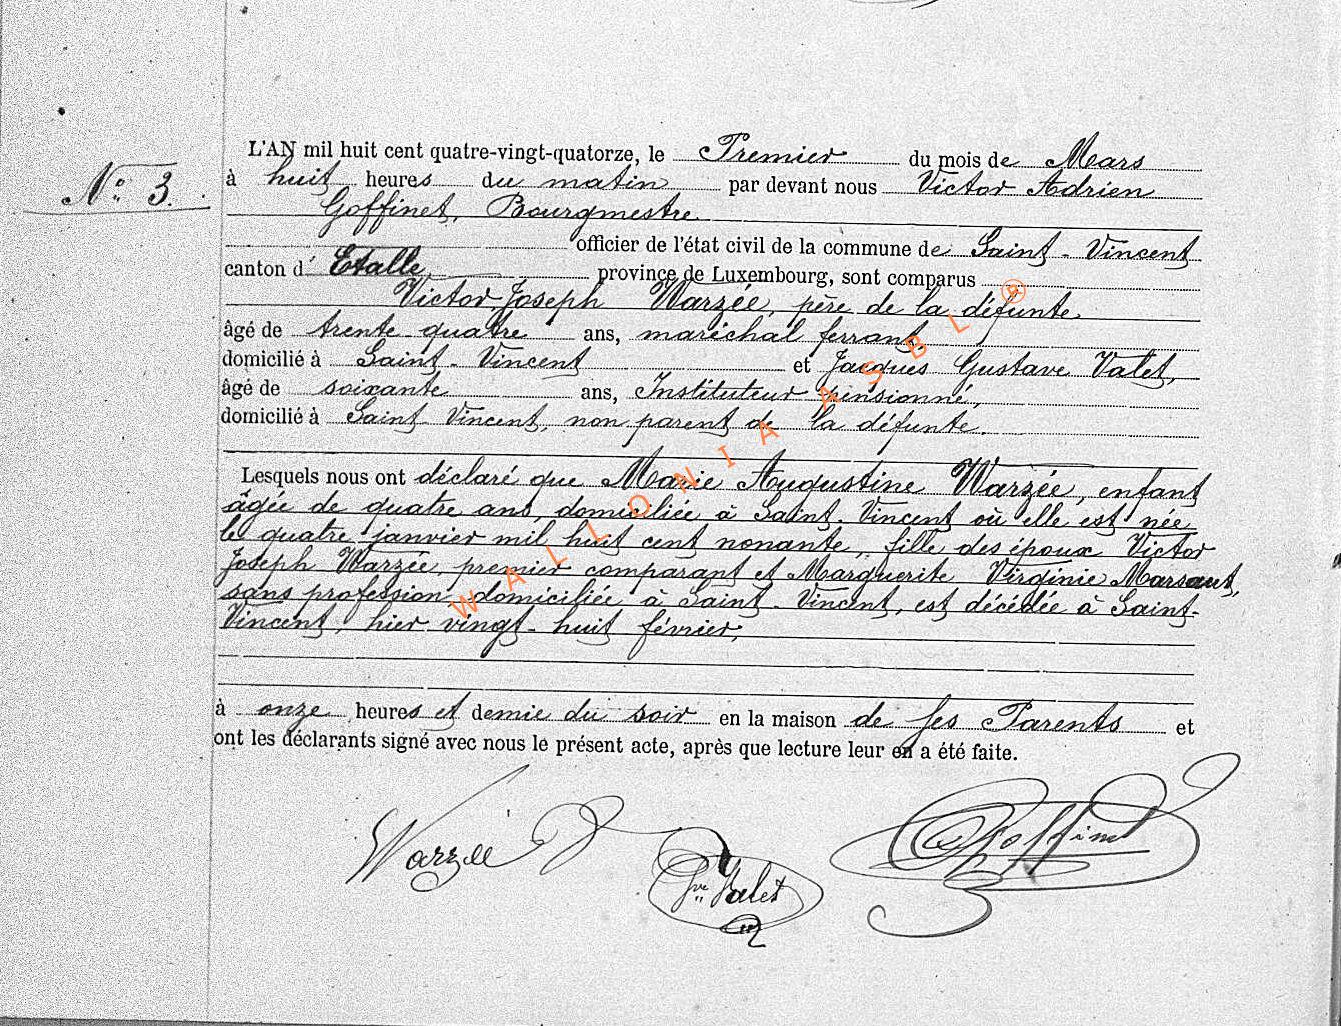 N° 3.
L'AN mil huit cent quatre-vingt-quatorze, le Premier du mois de Mars
à huit heures du matin par devant nous Victor Adrien
Goffinet, Bourgmestre
officier de l'état civil de la commune de Saint-Vincent
canton d' Etalle, province de Luxembourg, sont comparus
Victor Joseph Warzée, père de la défunte
âgé de trente quatre ans, maréchal ferrant,
domicilié à Saint-Vincent et Jacques Gustave Valet,
âgé de soixante ans, Instituteur pensionné,
domicilié à Saint-Vincent, non parent de la défunte.
Lesquels nous ont déclaré que Marie Augustine Warzée, enfant
âgée de quatre ans, domiciliée à Saint-Vincent où elle est née
le quatre janvier mil huit cent nonante, fille des époux Victor
Joseph Warzée, premier comparant et Marguerite Virginie Marsaut,
sans profession, domiciliée à Saint-Vincent, est décédée à Saint-
Vincent, hier vingt-huit février,
à onze heures et demie du soir en la maison de ses Parents et
ont les déclarants signé avec nous le présent acte, après que lecture leur en a été faite.
Warzée
Gve Valet
Goffinet
WALLONIA ASBL ®